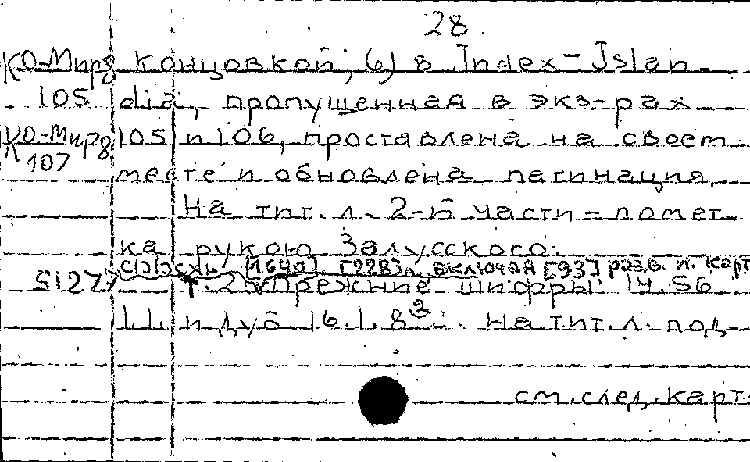 28.
КО-Мирд концовкой; 6) в Index-Islan
105 dia, пропущенная в экз-рах
КО-Мирд 105 и 106, проставлена на своем
107
месте и обновлена пагинация.
На тит. л. 2-й части - помет
ка рукою Залусского:
[1640] [228] л., включая [93] разв. л. карт
5127 Прежние шифры: 14.56
1.1. и дуб 16.1.8³. На тит. л. под
см. след. карт.